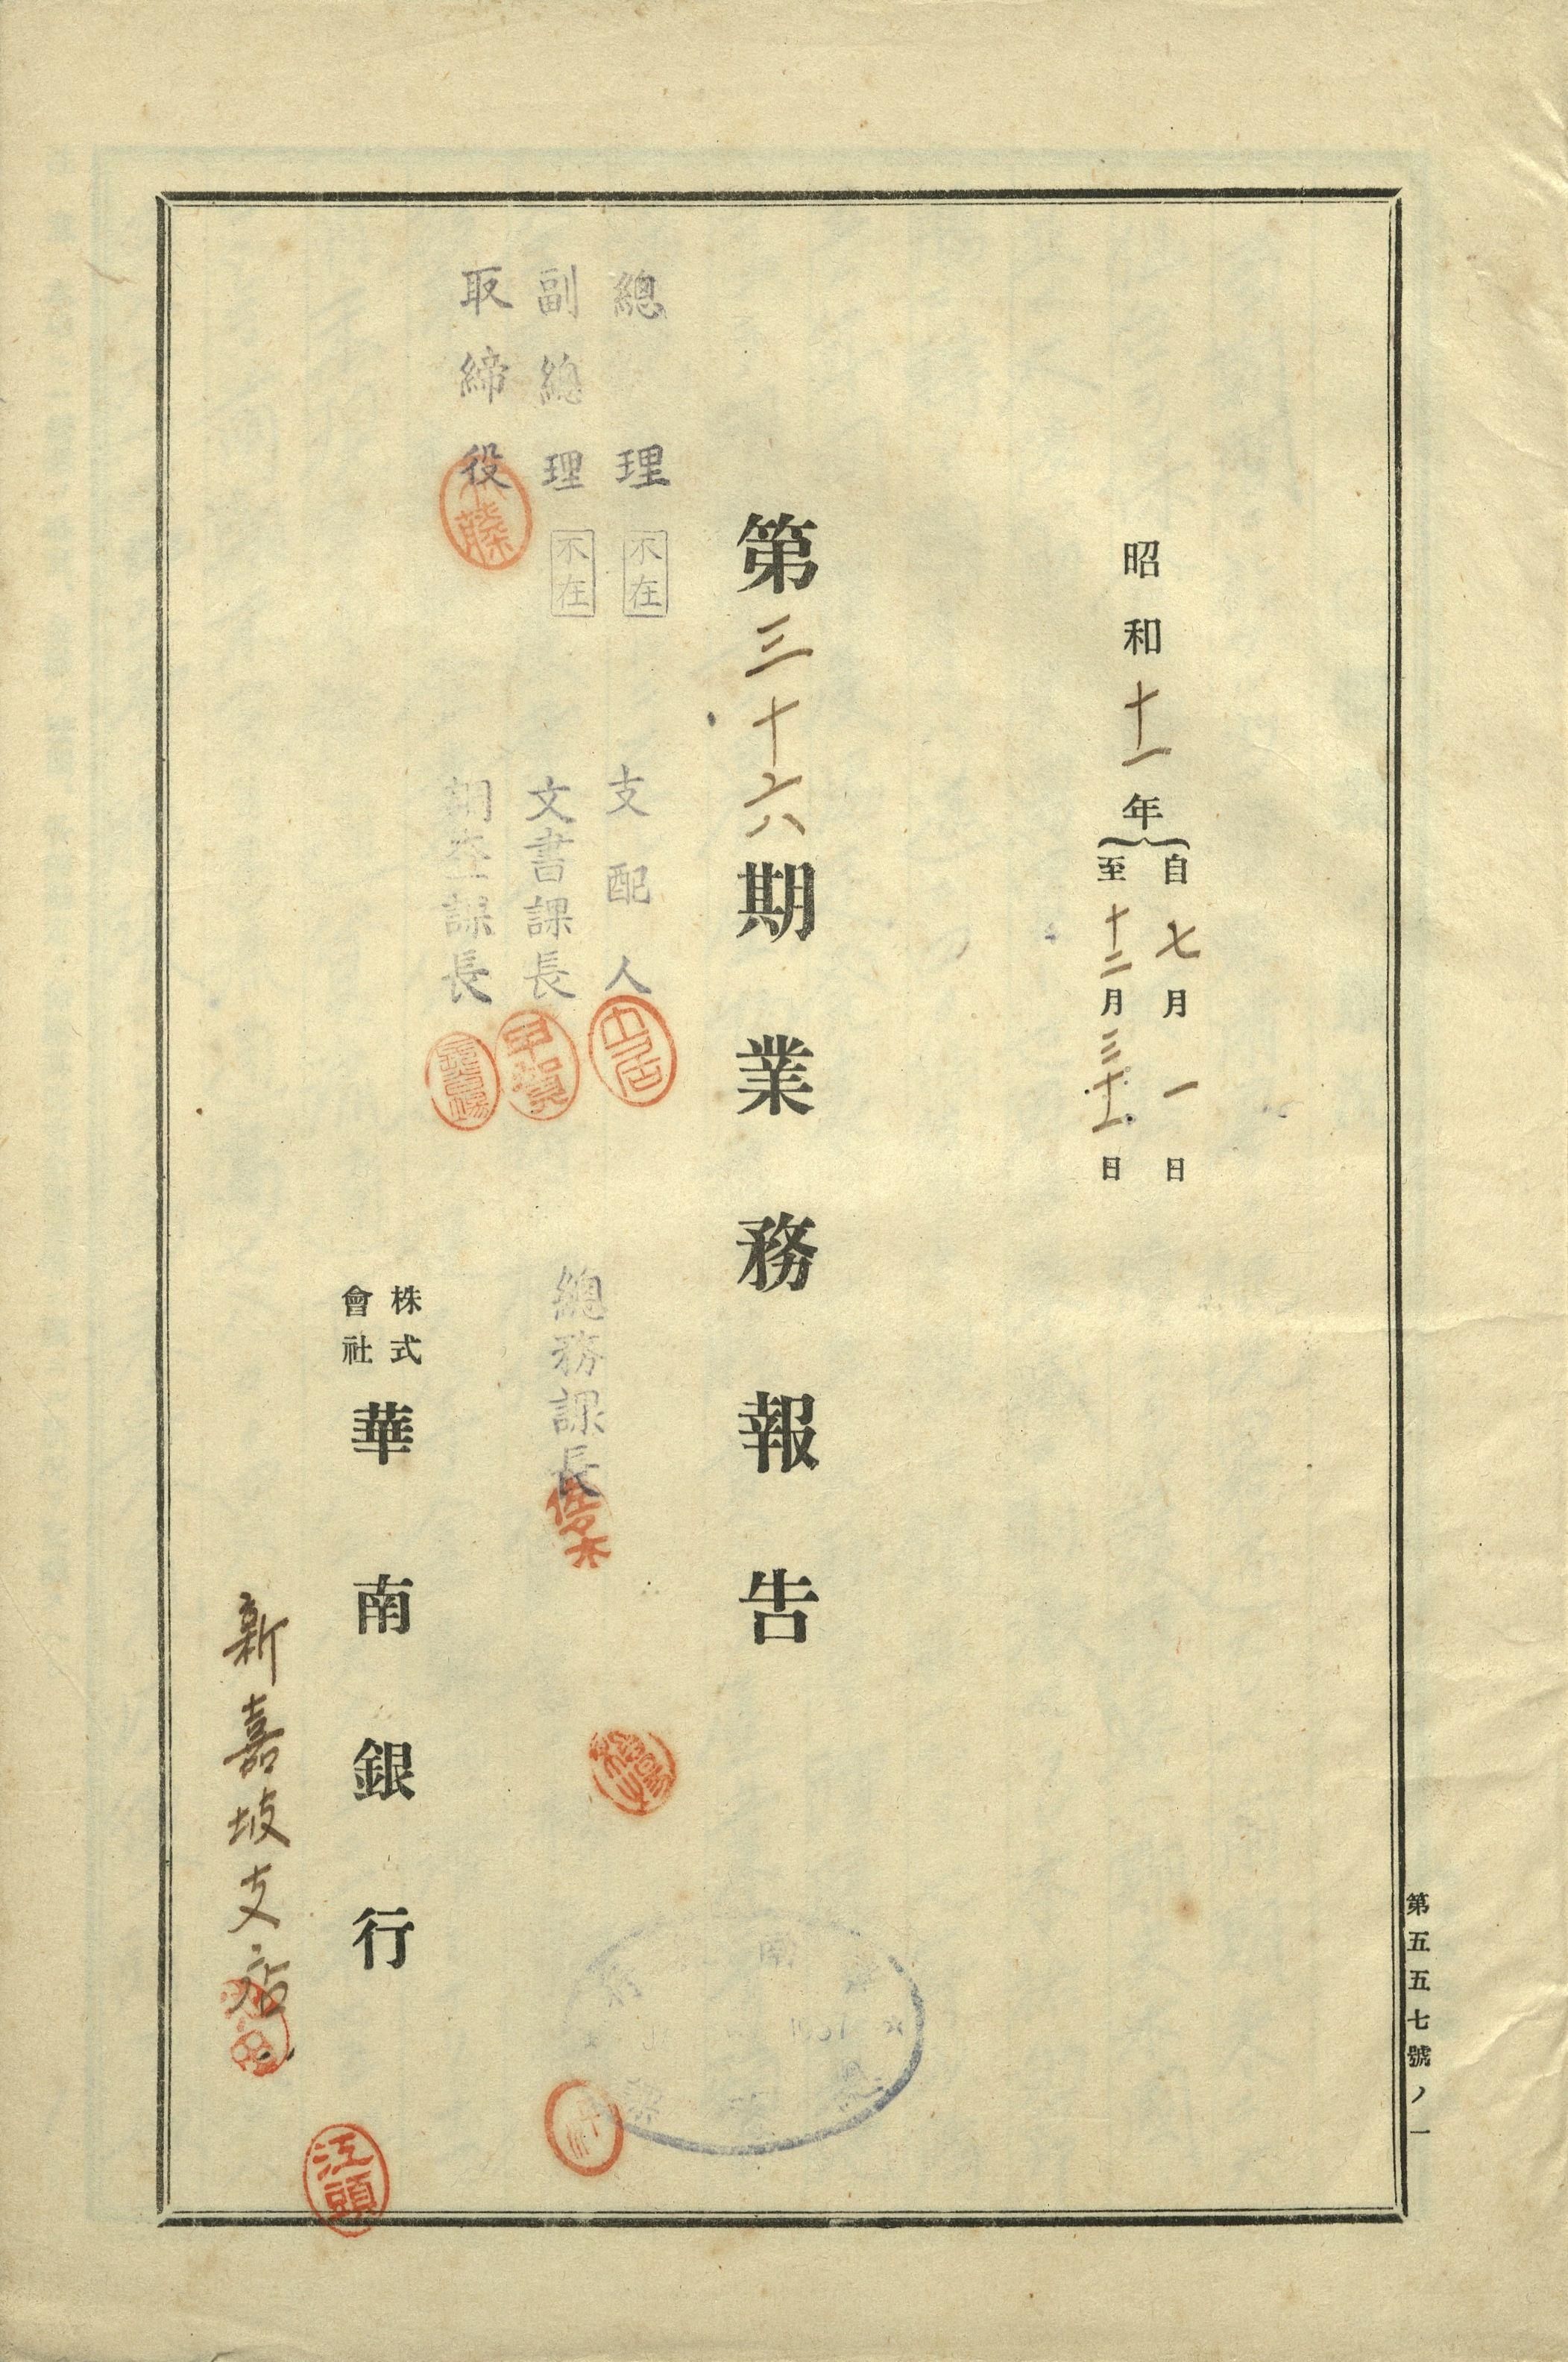 第五五七號ノ一
昭和十一年
自七月一日
至十二月三十一日
第三十六期業務報告
總理
不在
副總理
不在
取締役
支配人
文書課長
調査課長
總務課長
佐々木
株式會社
華南銀行
新嘉坡支店
江頭